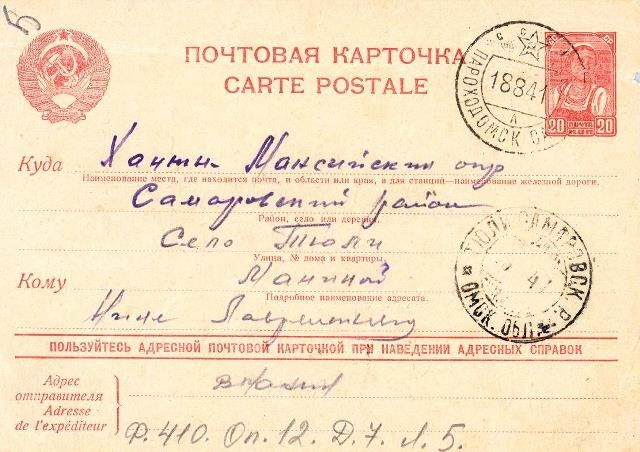 5
ПОЧТОВАЯ КАРТОЧКА
CARTE POSTALE
С С С Р
18841
ПАРОХОД ОМСК
20 20
Куда Ханты-Мансийский окр
Наименование места, где находится почта, и области или края, а для станций—наименование железной дороги.
Самаровский район
Район, село или деревня.
Село Тюли
Улица, № дома и квартиры.
ТЮЛИ САМАРОВСК. Р.
ОМСК. ОБЛ.
Кому Маниной
Подробное наименование адресата.
Нине
ПОЛЬЗУЙТЕСЬ АДРЕСНОЙ ПОЧТОВОЙ КАРТОЧКОЙ ПРИ НАВЕДЕНИИ АДРЕСНЫХ СПРАВОК
Адрес
отправителя
Adresse
de l'expéditeur
Ф. 410. Оп. 12. Д. 7. Л. 5.